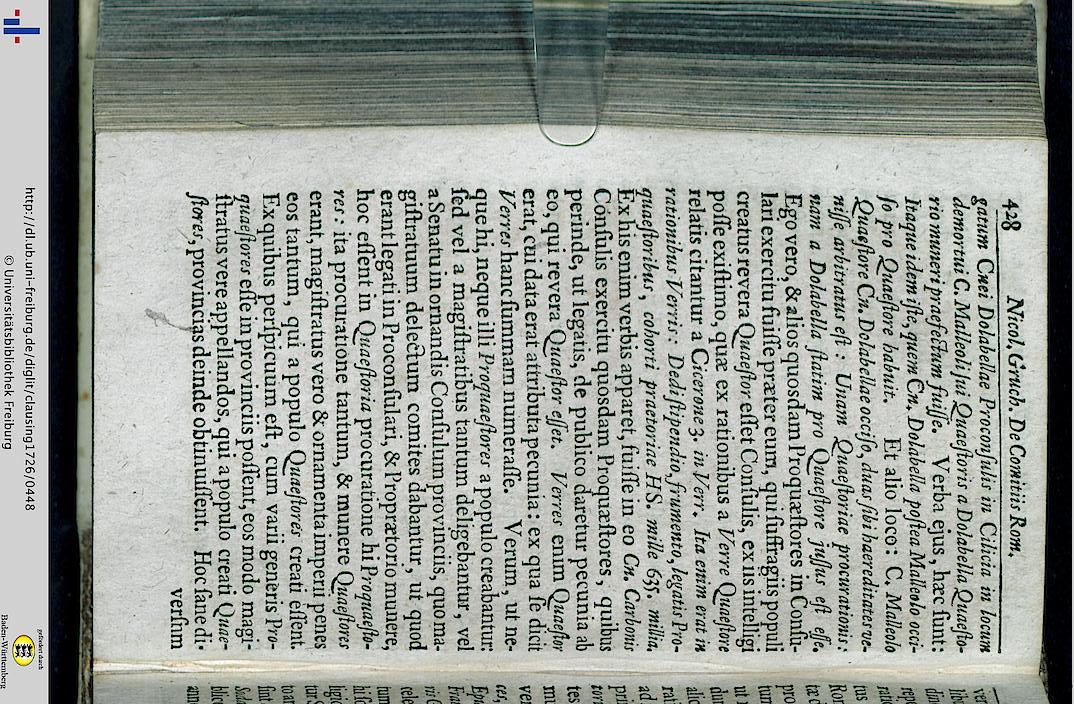 428 Nicol. Gruch. De Comitiis Rom.
gatum Cnei Dolabellae Proconsulis in Cilicia in locum
demortui C. Malleoli sui Quaestoris a Dolabella Quaesto-
rio muneri praefectum fuisse. Verba ejus, hæc sunt:
Itaque idem iste, quem Cn. Dolabella postea Malleolo occi-
so pro Quaestore habuit. Et alio loco: C. Malleolo
Quaestore Cn. Dolabellae occiso, duas sibi haereditates ve-
nisse arbitratus est: Unam Quaestoriae procurationis:
nam a Dolabella statim pro Quaestore jussus est esse.
Ego vero, & alios quosdam Proquæstores in Consu-
lari exercitu fuisse præter eum, qui suffragiis populi
creatus revera Quaestor esset Consulis, ex iis intelligi
posse existimo, quæ ex rationibus a Verre Quaestore
relatis citantur a Cicerone 3. in Verr. Ita enim erat in
rationibus Verris: Dedi stipendio, frumento, legatis Pro-
quaestoribus, cohorti praetoriae HS. mille 635. millia.
Ex his enim verbis apparet, fuisse in eo Cn. Carbonis
Consulis exercitu quosdam Proquæstores, quibus
perinde, ut legatis, de publico daretur pecunia ab
eo, qui revera Quaestor esset. Verres enim Quaestor
erat, cui data erat attributa pecunia: ex qua se dicit
Verres hanc summam numerasse. Verum, ut ne-
que hi, neque illi Proquaestores a populo creabantur:
sed vel a magistratibus tantum deligebantur, vel
a Senatu in ornandis Consulum provinciis, quo ma-
gistratuum delectum comites dabantur, ut quod
erant legati in Proconsulari, & Proprætorio munere,
hoc essent in Quaestoria procuratione hi Proquaesto-
res: ita procuratione tantum, & munere Quaestores
erant, magistratus vero & ornamenta imperii penes
eos tantum, qui a populo Quaestores creati essent.
Ex quibus perspicuum est, cum varii generis Pro-
quaestores esse in provinciis possent, eos modo magi-
stratus vere appellandos, qui a populo creati Quae-
stores, provincias deinde obtinuissent. Hoc sane di-
versum
http://dl.ub.uni-freiburg.de/diglit/clausing1726/0448
© Universitätsbibliothek Freiburg
gefördert durch
Baden-Württemberg